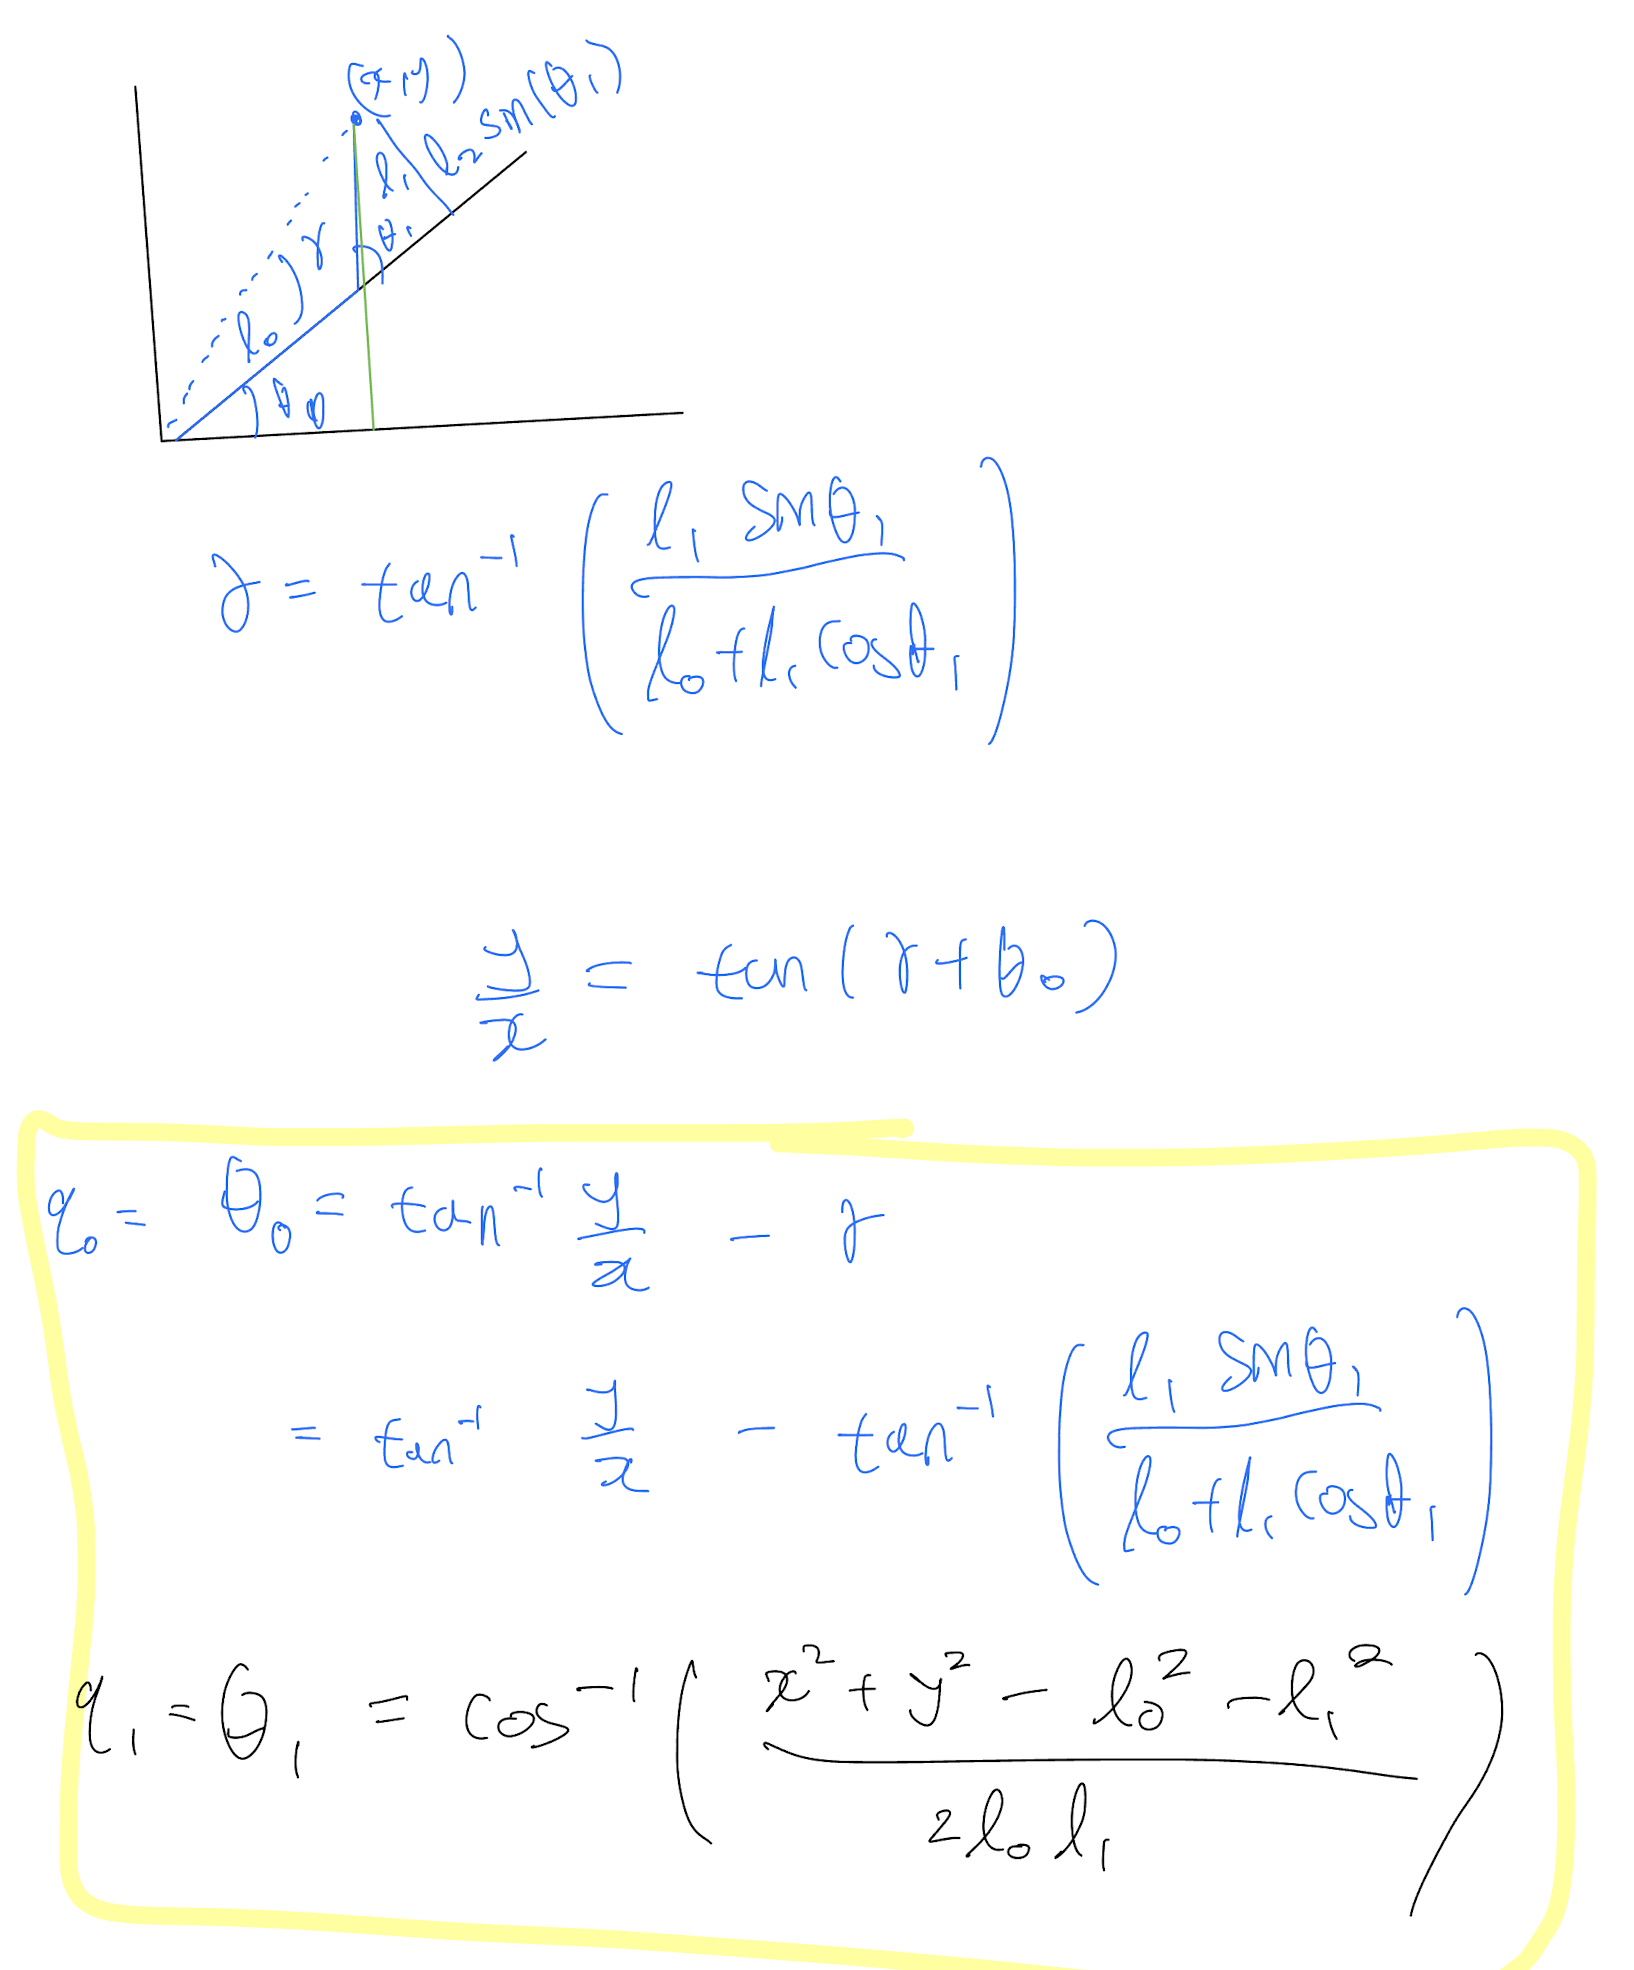 (x, y)
l₂ sin(θ₁)
l₁
θ₁
γ
l₀
θ₀
γ = tan⁻¹ ( l₁ sinθ₁ / l₀ + l₁ cosθ₁ )
y/x = tan(γ + θ₀)
q₀ = θ₀ = tan⁻¹ y/x − γ
= tan⁻¹ y/x − tan⁻¹ ( l₁ sinθ₁ / l₀ + l₁ cosθ₁ )
q₁ = θ₁ = cos⁻¹ ( x² + y² − l₀² − l₁² / 2 l₀ l₁ )